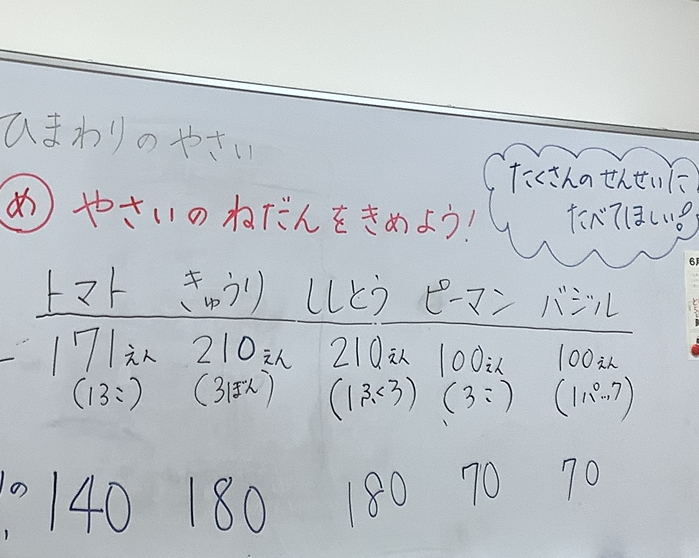 ひまわりのやさい
たくさんのせんせいに
たべてほしい!
め やさいのねだんをきめよう!
トマト きゅうり ししとう ピーマン バジル
171えん 210えん 210えん 100えん 100えん
(13こ) (3ぼん) (1ふくろ) (3こ) (1パック)
の 140 180 180 70 70
6